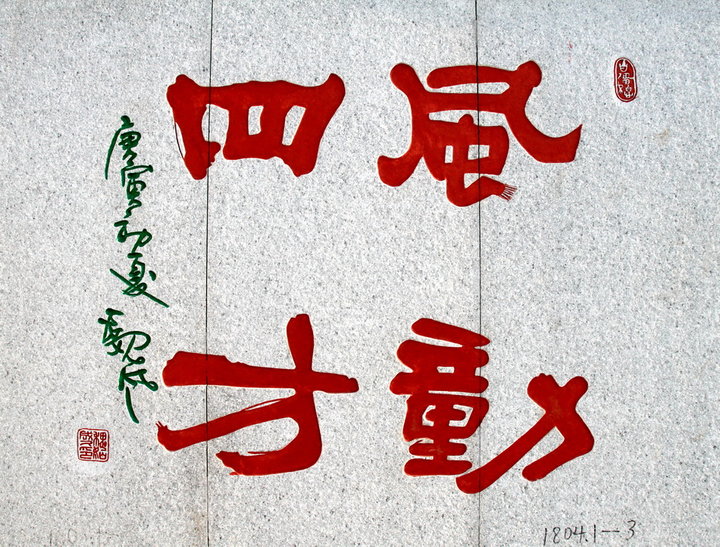 風動
四方
庚寅初夏
1804.1—3